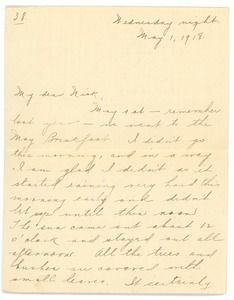 38
Wednesday night
May 1, 1918.
My dear Nick,
May 1st — remember
last year — we went to the
May Breakfast. I didn't go
this morning, and in a way
I am glad I didn't as it
started raining very hard this
morning early and didn't
let up until this noon.
The sun came out about 12
o'clock and stayed out all
afternoon. All the trees and
bushes are covered with
small leaves. It certainly